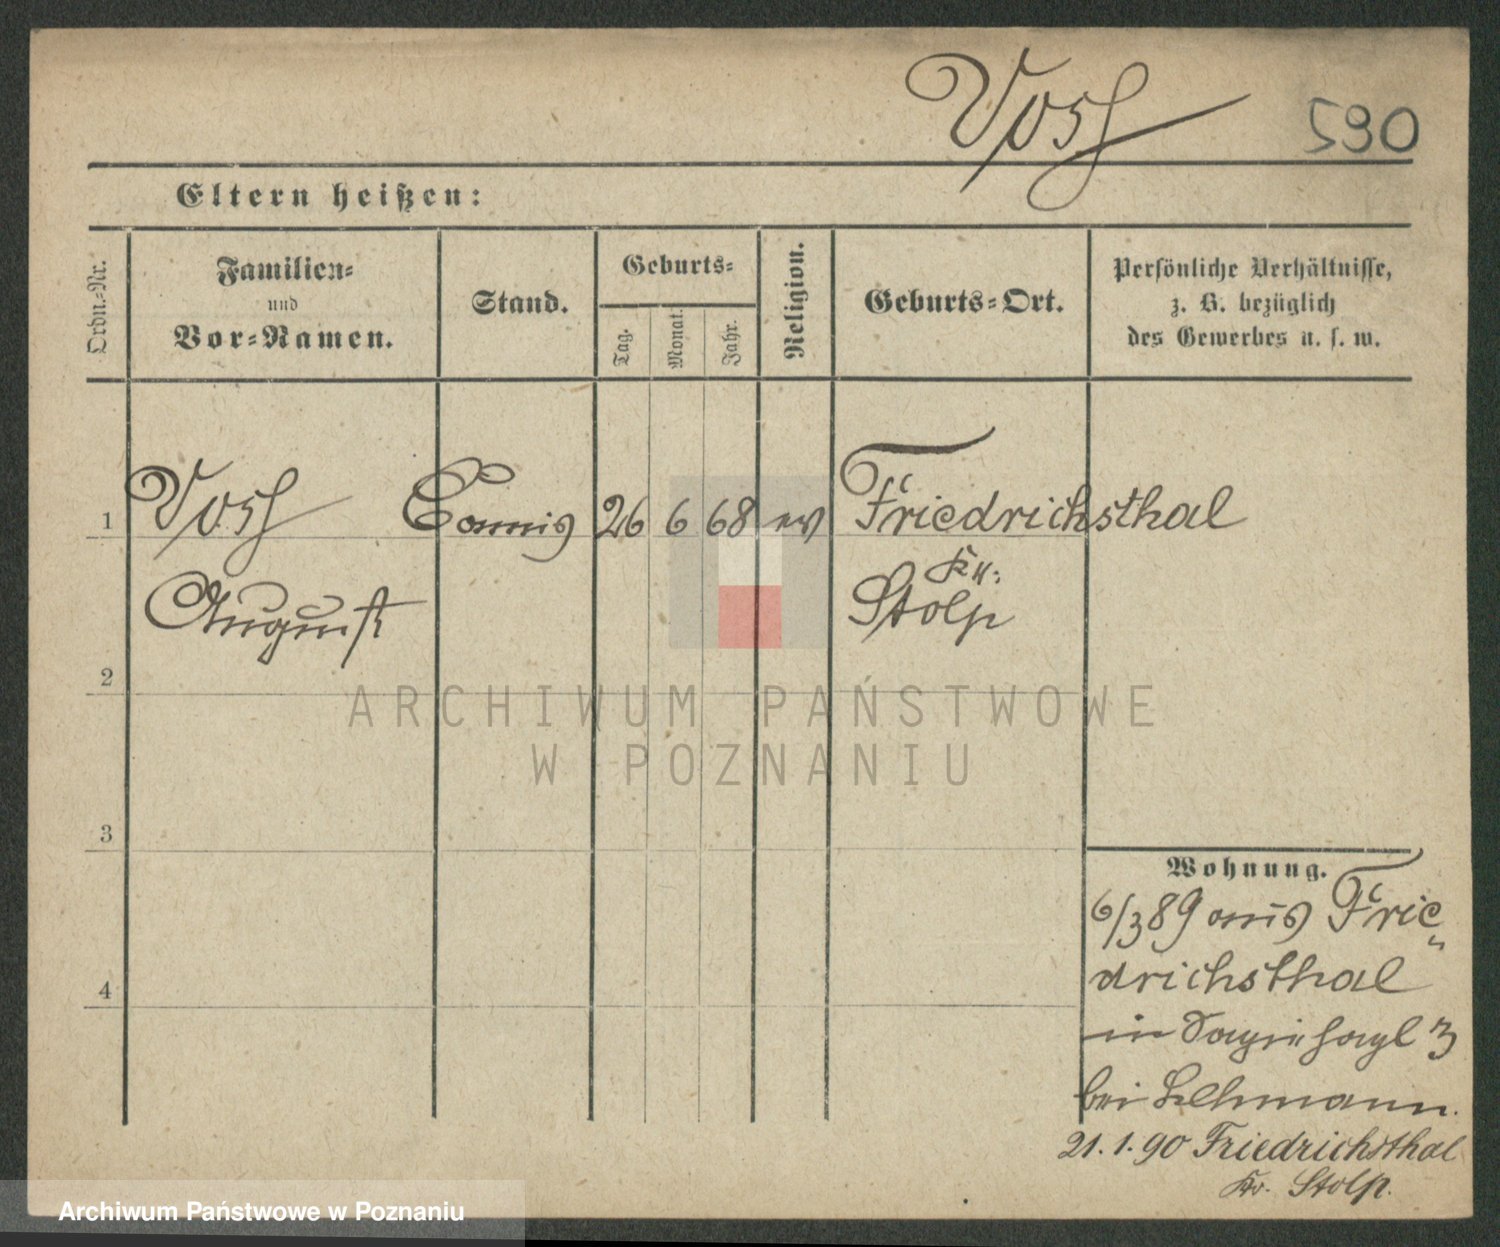 Vosſ 590
Eltern heißen:
Ordn.-Nr.
Familien-
und
Vor-Namen.
Stand.
Geburts-
Tag.
Monat.
Jahr.
Religion.
Geburts-Ort.
Persönliche Verhältnisse,
z. B. bezüglich
des Gewerbes u. s. w.
1 Vosſ Commis 26 6 68 ev Friedrichsthal
Kr:
August Stolp
2
ARCHIWUM PAŃSTWOWE
W POZNANIU
3
Wohnung.
6/3 89 aus Frie„
drichsthal
4
in 3
bei Lehmann.
21.1.90 Friedrichsthal
Kr. Stolp.
Archiwum Państwowe w Poznaniu